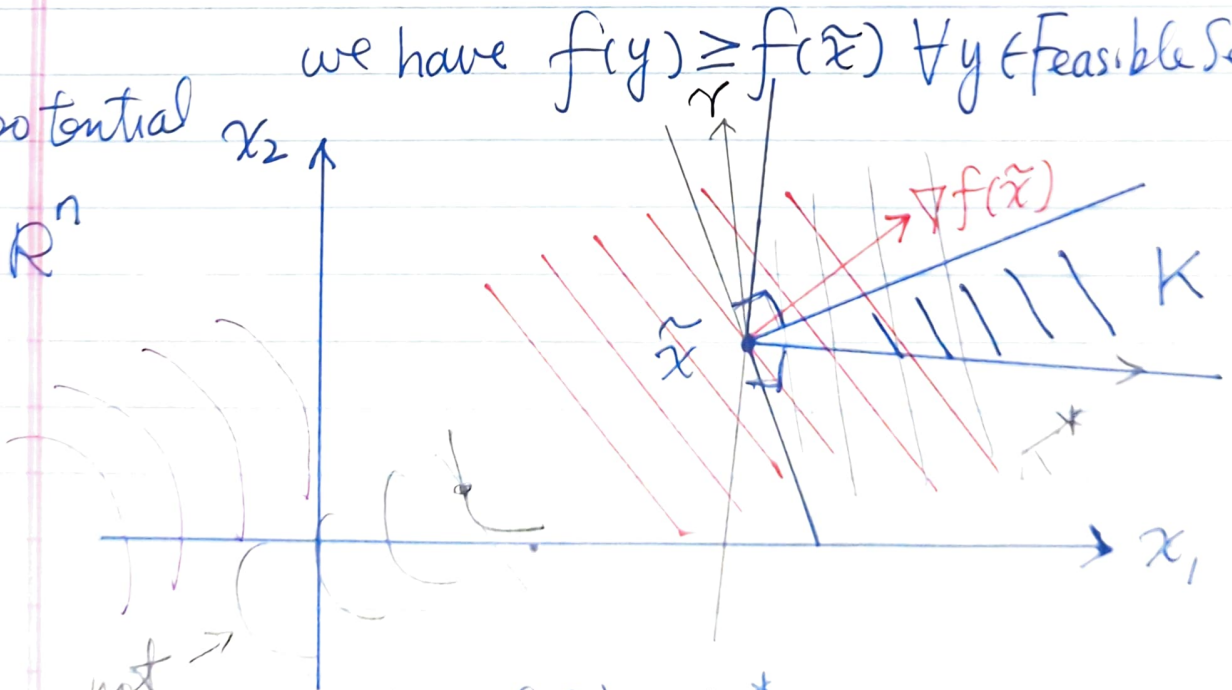 we have f(y) ≥ f(x̃) ∀y ∈ Feasible
potential
x₂
γ
Rⁿ
∇f(x̃)
K
x̃
*
x₁
not
*